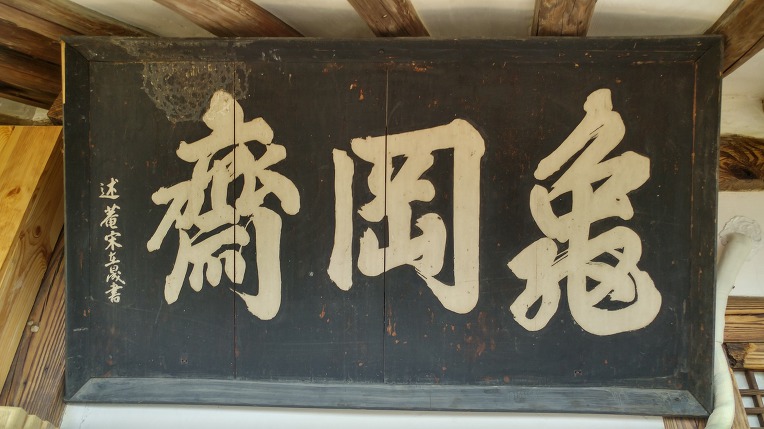 龜岡齋
述菴宋立晟書